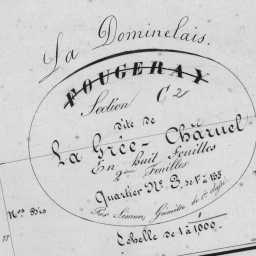 La Dominelais.
FOUGERAY
Section C2
dite de
La Grée-Charuel
En huit Feuilles
2me Feuilles
Quartier No. B, de No. 1 à 155
Par Géomètre de 1re
Echelle de 1 à 1000.